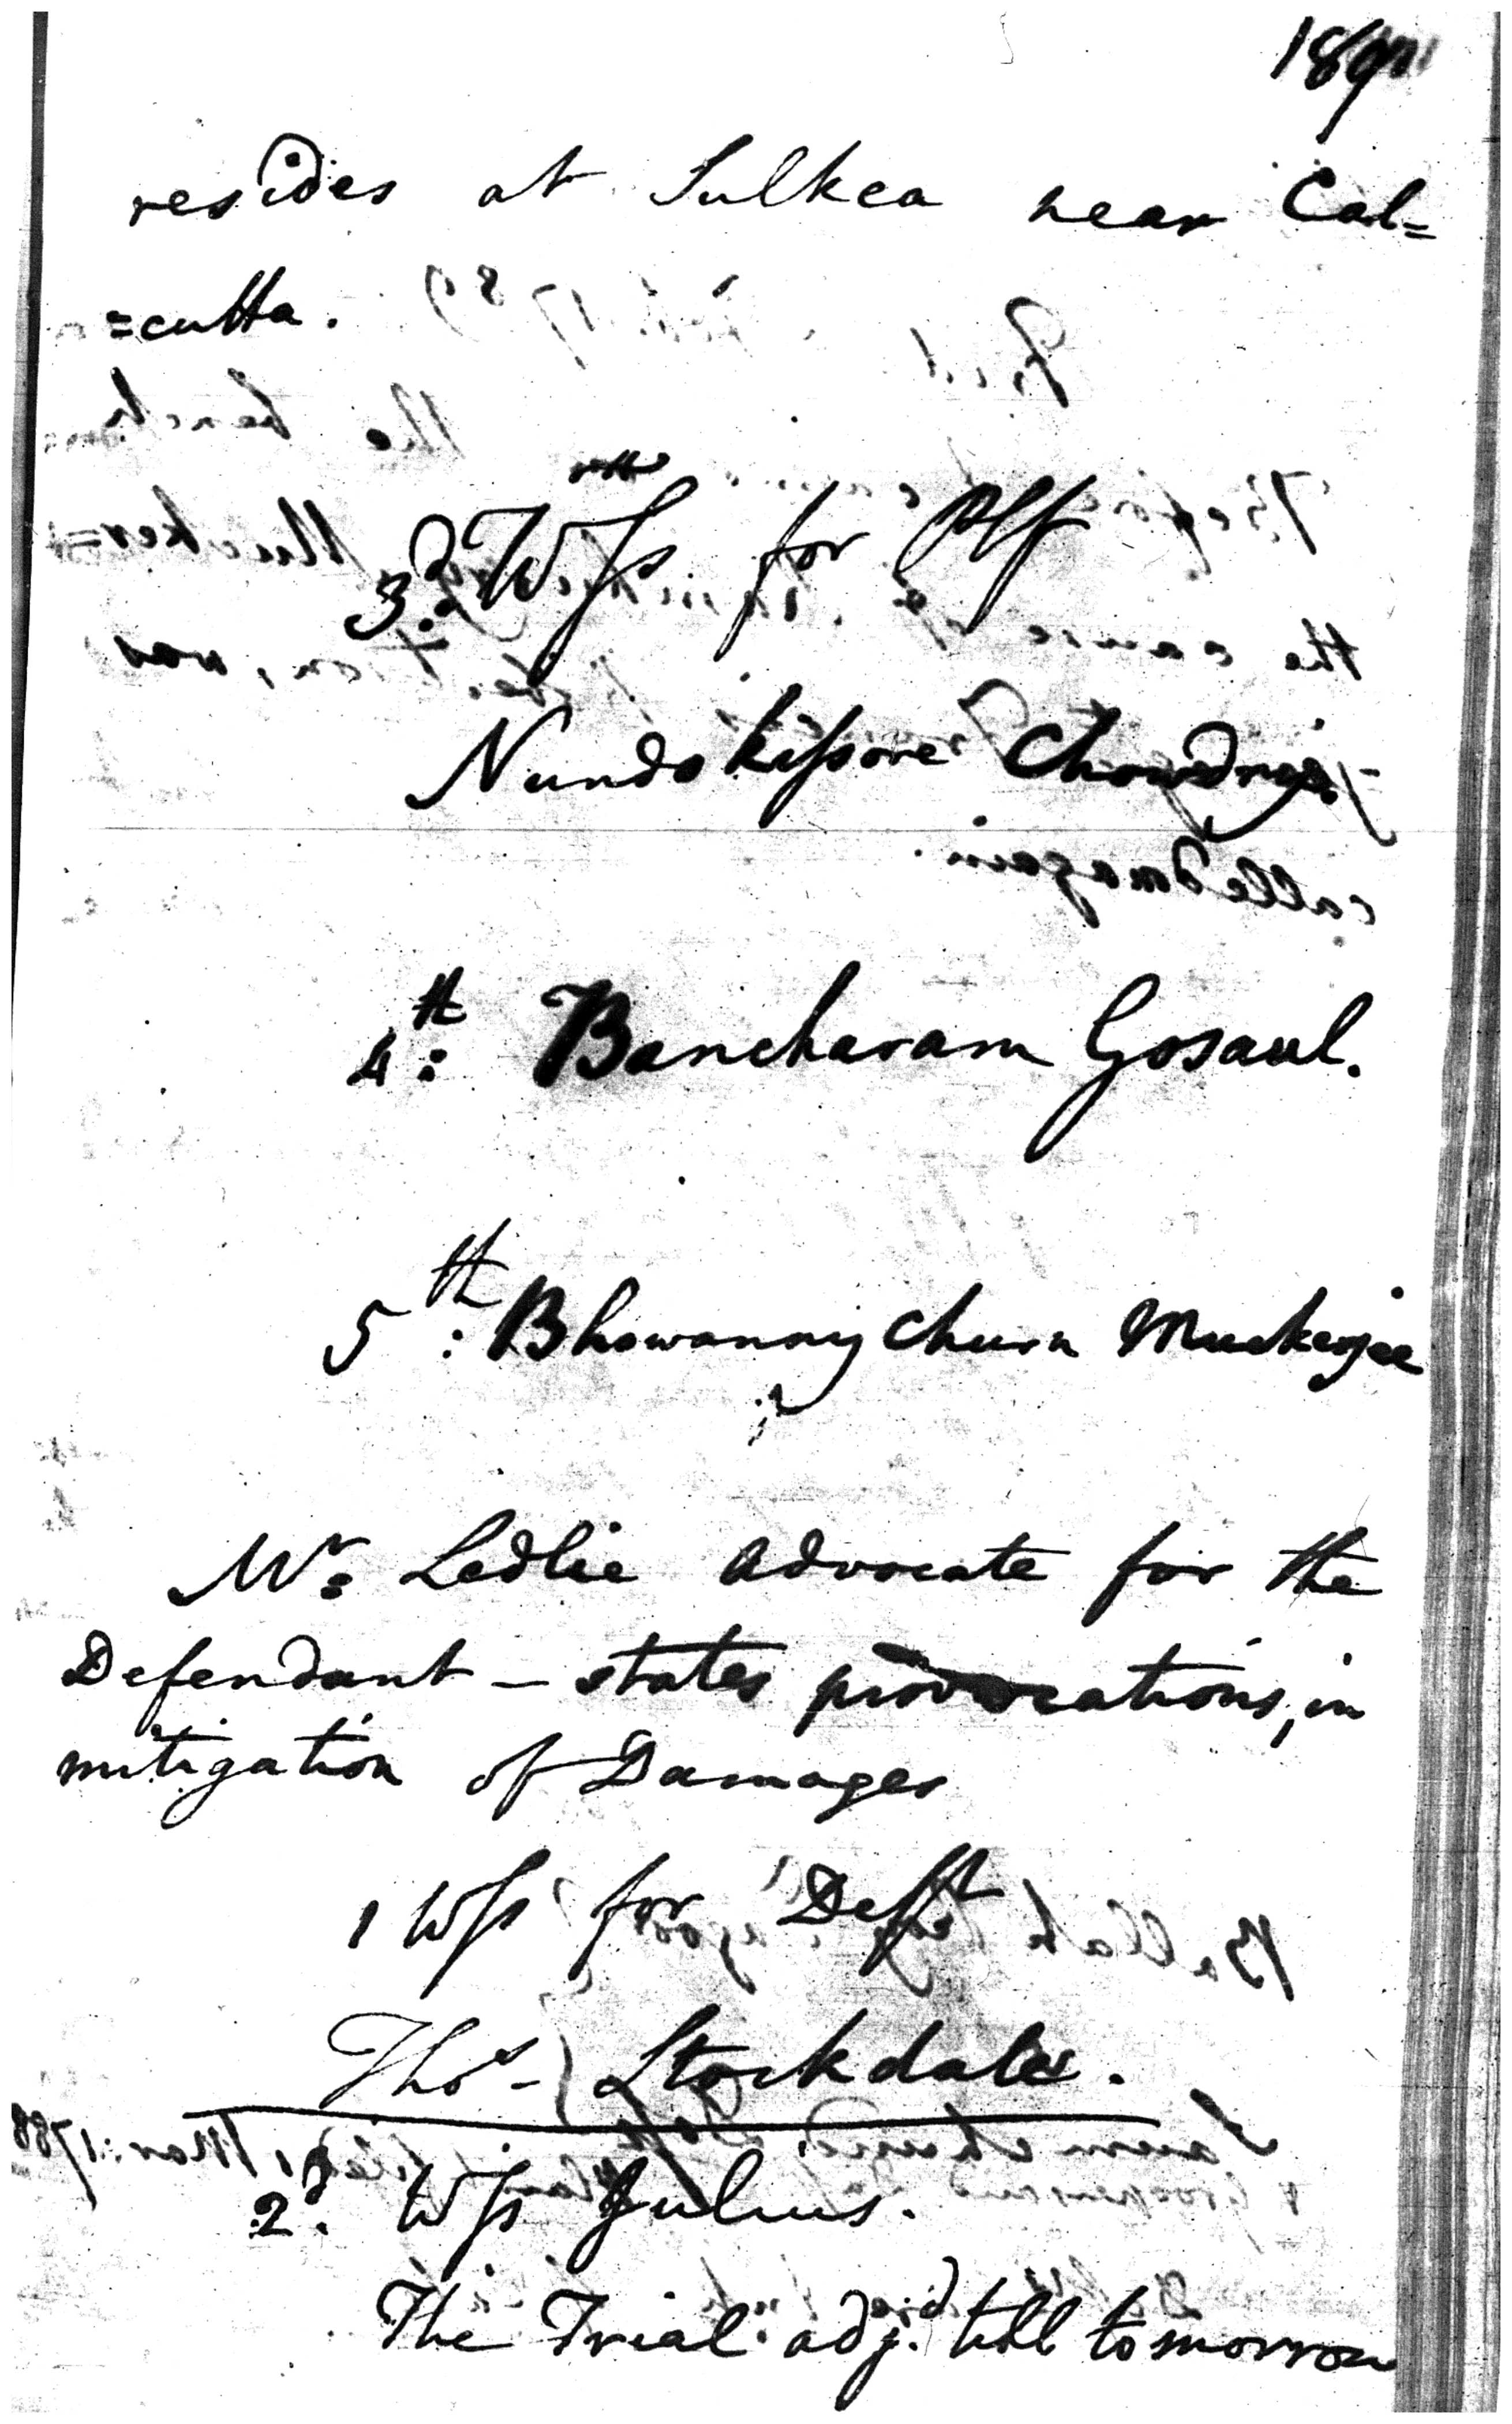 resides at Sulkea near Cal=
=cutta.
3.d Wss for Plf
Nundokissore Chowdry
4.th Bancharam Gosaul.
5.th Bhowanny Churn Muckerjee
Mr. Ledlie advocate for the
Defendant – states provocations, in
mitigation of Damages
1 Wss for Deft
Thos – Stockdale.
2.d Wss Julius.
The Trial adj.d till tomorrow